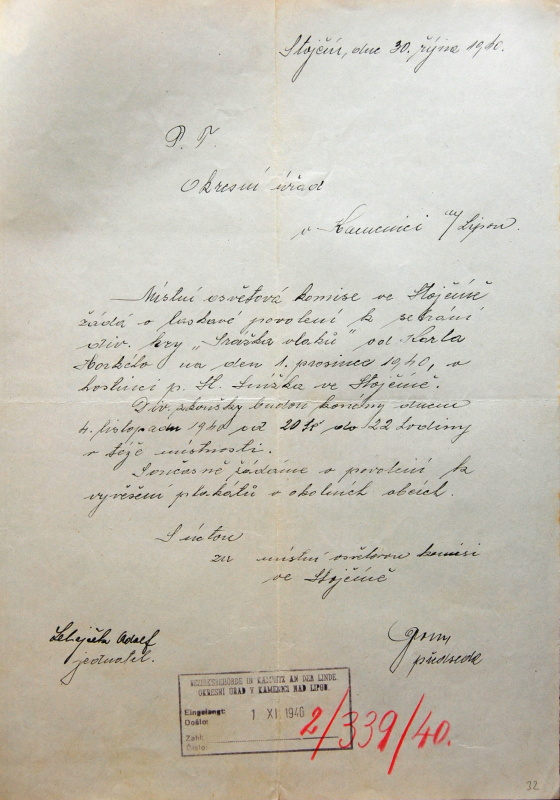 Stojčín, dne 30. října 1940.
P. T.
Okresní úřad
v Kamenici n/ Lipou.
Místní osvětová komise ve Stojčíně
žádá o laskavé povolení k sehrání
div. hry „Srážka vlaků" od Karla
na den 1. prosince 1940, v
hostinci p. ve Stojčíně.
Div. zkoušky budou konány dnem
4. listopadu 1940 od 20 do 22 hodiny
v téže místnosti.
Současně žádáme o povolení k
vyvěšení plakátů v okolních obcích.
S úctou
za místní osvětovou komisi
ve Stojčíně
Adolf
jednatel.
předseda
BEZIRKSBEHÖRDE IN KAMNITZ AN DER LINDE.
OKRESNÍ ÚŘAD V KAMENICI NAD LIPOU.
Eingelangt:
Došlo:
1 XI. 1940
Zahl:
Číslo:
2/339/40.
32